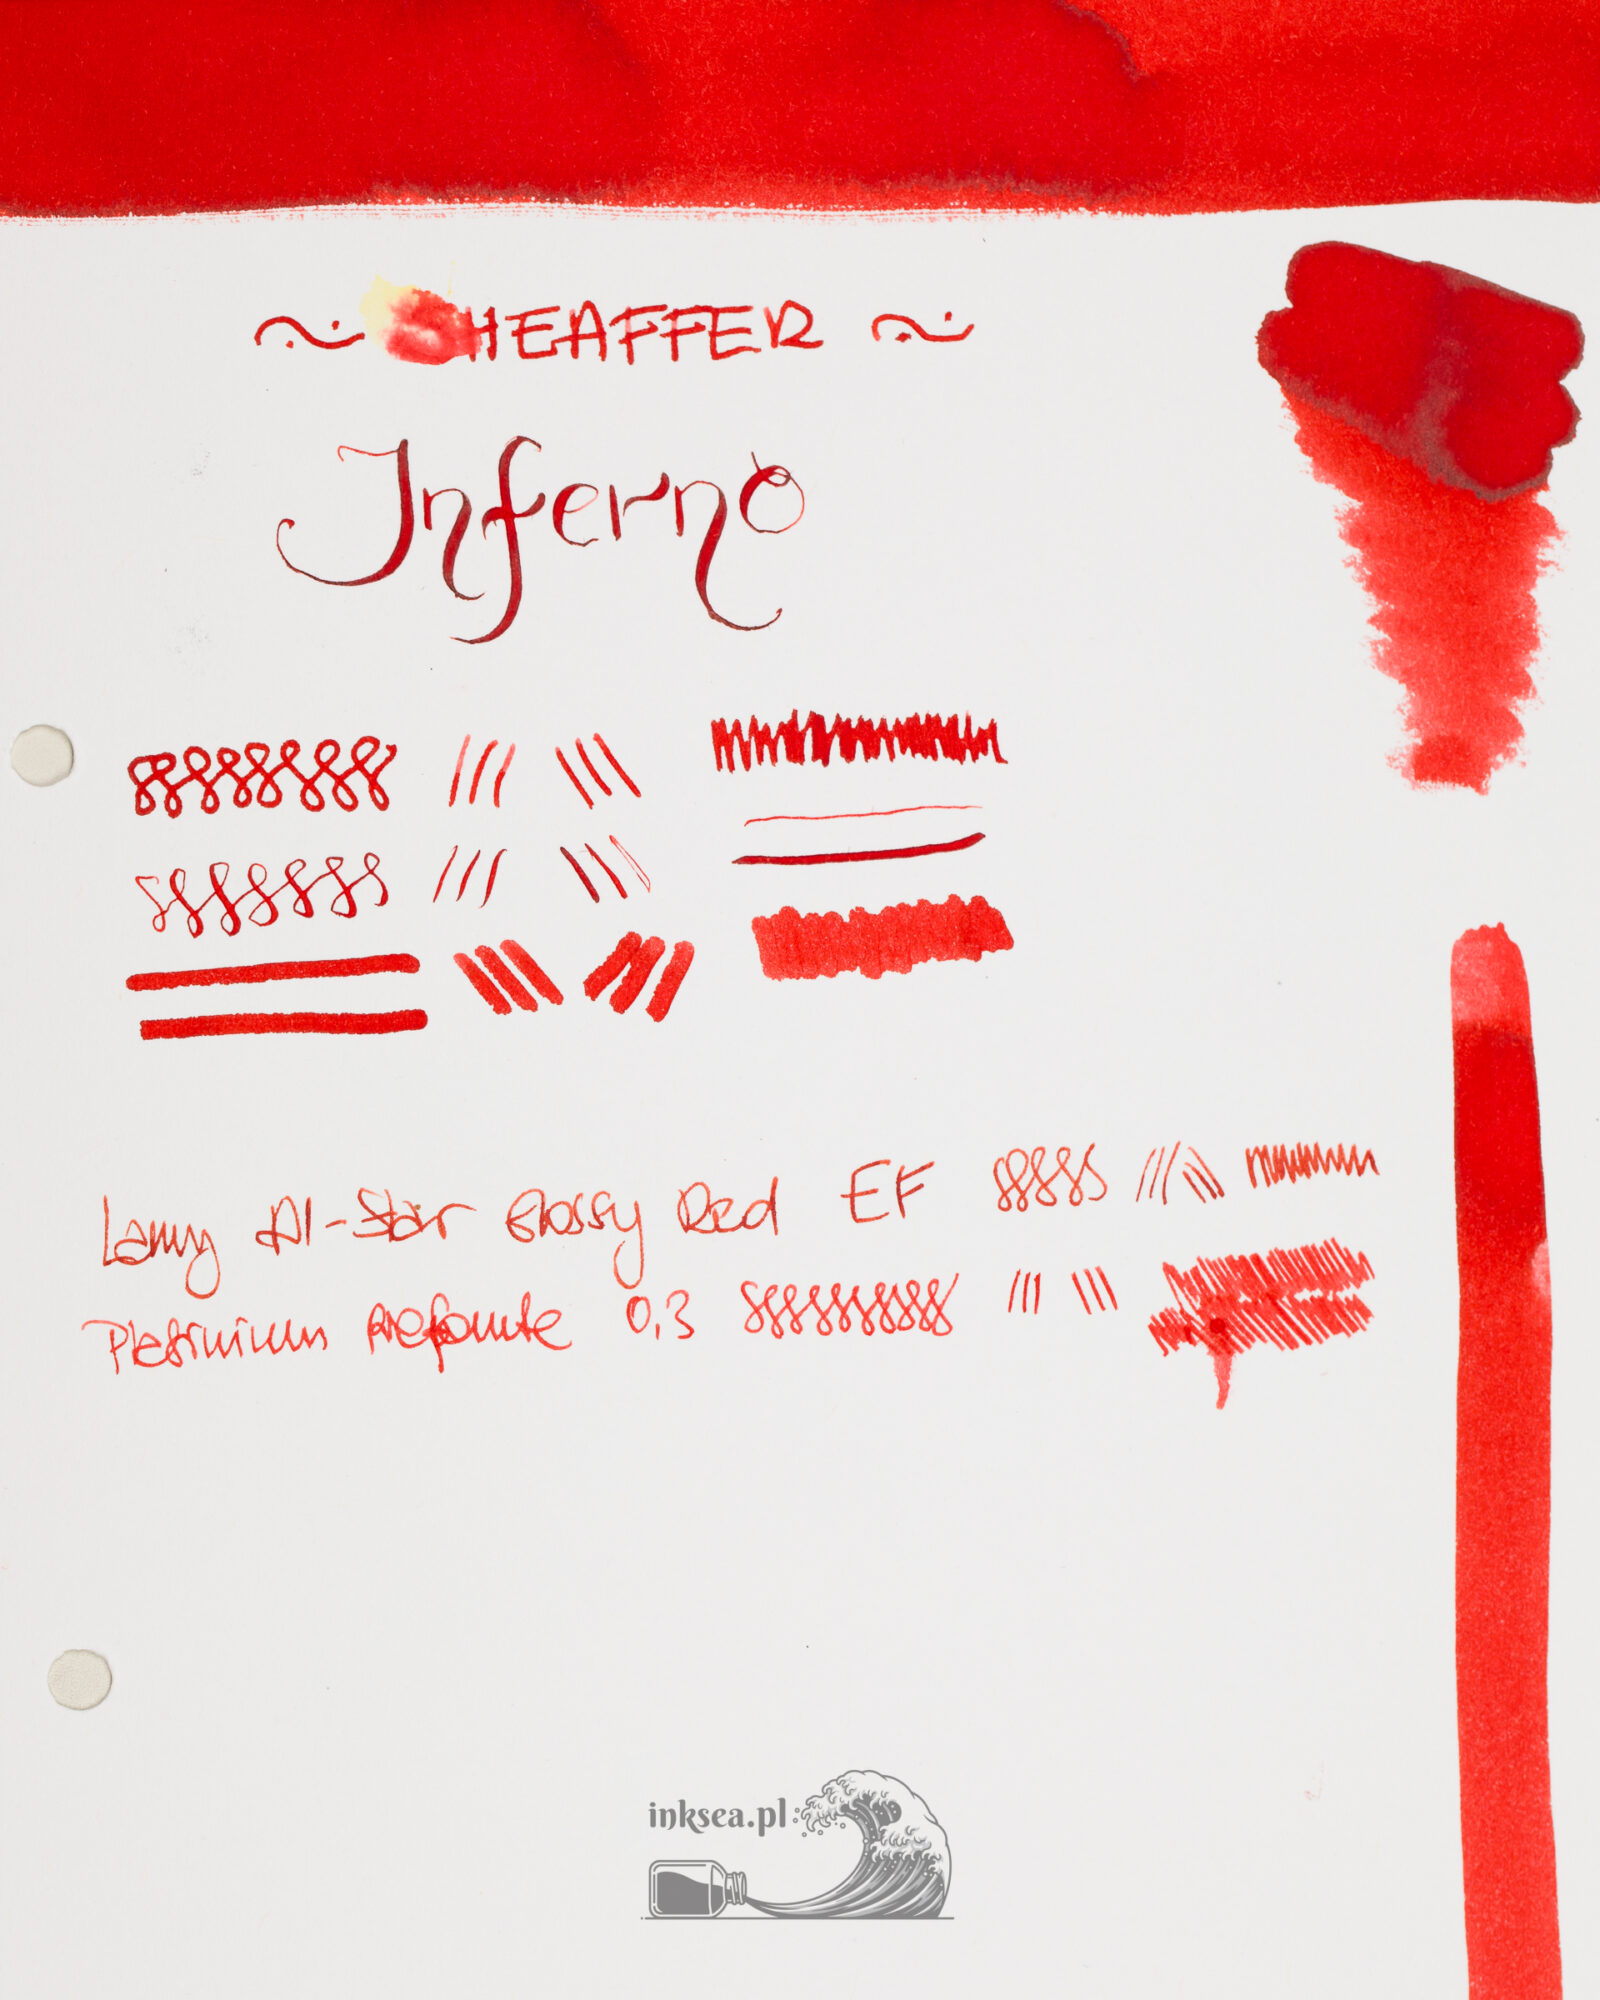 ~ SHEAFFER ~
Inferno
Lamy Al-Star Glossy Red EF
Platinium Prefounte 0,3
inksea.pl